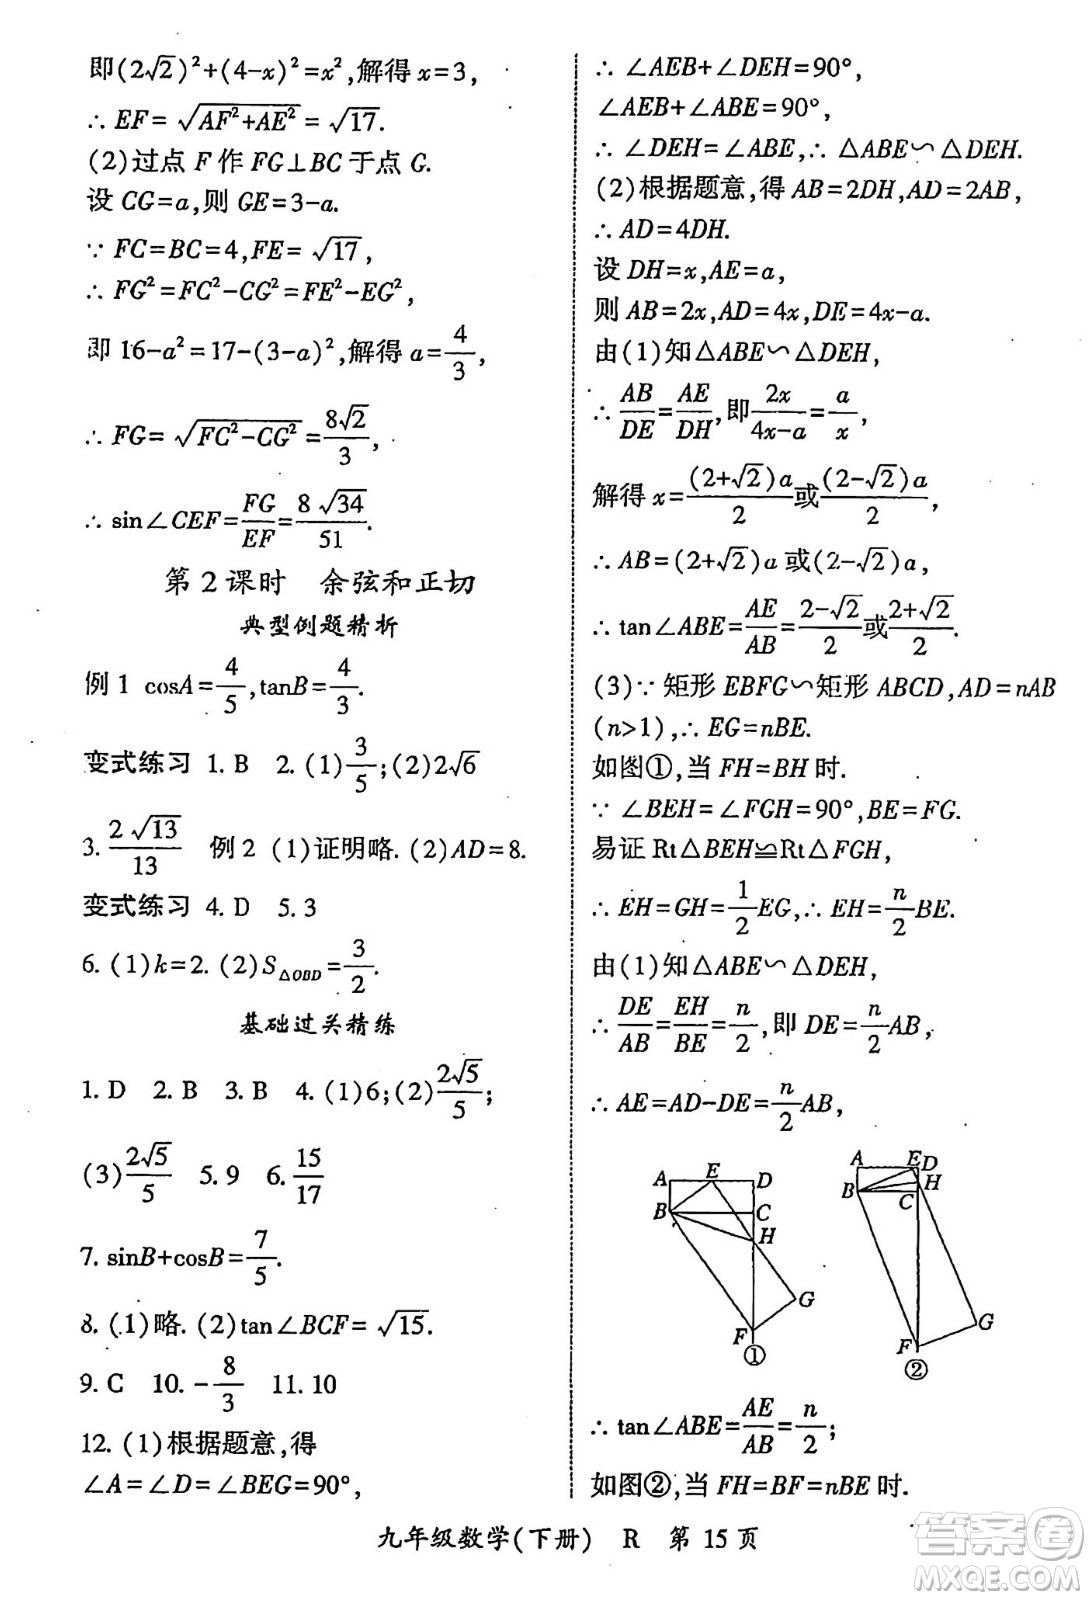 即(2√2)²+(4-x)²=x²,解得x=3,
∴EF=√(AF²+AE²)=√17.
(2)过点F作FG⊥BC于点G.
设CG=a,则GE=3-a.
∵FC=BC=4,FE=√17,
∴FG²=FC²-CG²=FE²-EG²,
即16-a²=17-(3-a)²,解得a=4/3,
∴FG=√(FC²-CG²)=8√2/3,
∴sin∠CEF=FG/EF=8√34/51.
第2课时 余弦和正切
典型例题精析
例1 cosA=4/5,tanB=4/3.
变式练习 1. B 2. (1)3/5;(2)2√6
3. 2√13/13 例2 (1)证明略. (2)AD=8.
变式练习 4. D 5. 3
6. (1)k=2. (2)S△OBD=3/2.
基础过关精练
1. D 2. B 3. B 4. (1)6;(2)2√5/5;
(3)2√5/5 5. 9 6. 15/17
7. sinB+cosB=7/5.
8. (1)略. (2)tan∠BCF=√15.
9. C 10. -8/3 11. 10
12. (1)根据题意,得
∠A=∠D=∠BEG=90°,
∴∠AEB+∠DEH=90°,
∠AEB+∠ABE=90°,
∴∠DEH=∠ABE,∴△ABE∽△DEH.
(2)根据题意,得AB=2DH,AD=2AB,
∴AD=4DH.
设DH=x,AE=a,
则AB=2x,AD=4x,DE=4x-a.
由(1)知△ABE∽△DEH,
∴AB/DE=AE/DH,即2x/(4x-a)=a/x,
解得x=(2+√2)a/2或(2-√2)a/2,
∴AB=(2+√2)a或(2-√2)a,
∴tan∠ABE=AE/AB=(2-√2)/2或(2+√2)/2.
(3)∵矩形EBFG∽矩形ABCD,AD=nAB
(n>1),∴EG=nBE.
如图①,当FH=BH时.
∵∠BEH=∠FGH=90°,BE=FG.
易证Rt△BEH≌Rt△FGH,
∴EH=GH=1/2EG,∴EH=n/2BE.
由(1)知△ABE∽△DEH,
∴DE/AB=EH/BE=n/2,即DE=n/2AB,
∴AE=AD-DE=n/2AB,
A E D
B C
H
G
F
①
A E D
H
B C
G
F
②
∴tan∠ABE=AE/AB=n/2;
如图②,当FH=BF=nBE时.
九年级数学(下册) R 第15页
答案圈
MXQE.COM